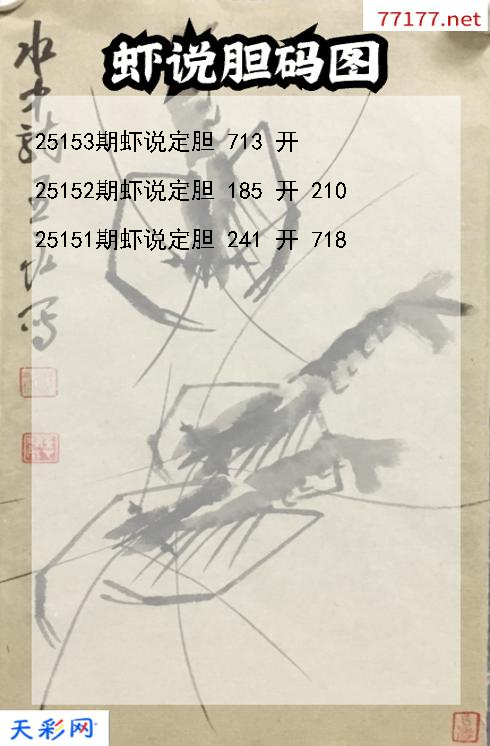 77177.net
虾说胆码图
25153期虾说定胆 713 开
25152期虾说定胆 185 开 210
25151期虾说定胆 241 开 718
天彩网